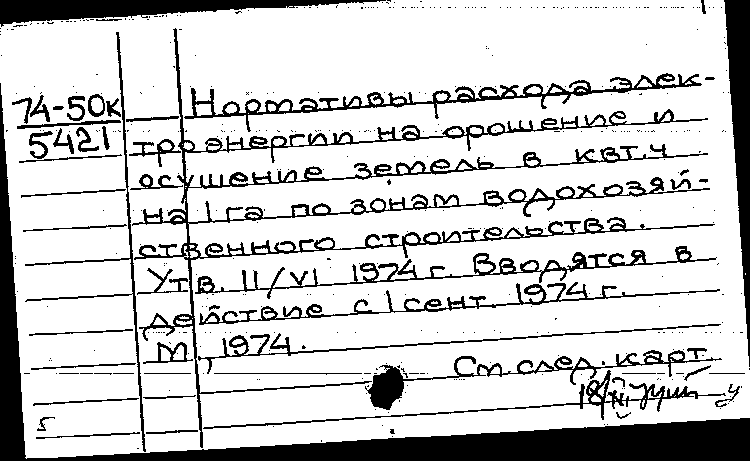 74-50к
5421
Нормативы расхода элек-
троэнергии на орошение и
осушение земель в квт.ч
на 1 га по зонам водохозяй-
ственного строительства.
Утв. 11/VI 1974 г. Вводятся в
действие с 1 сент. 1974 г.
М., 1974.
См. след. карт
18/
5